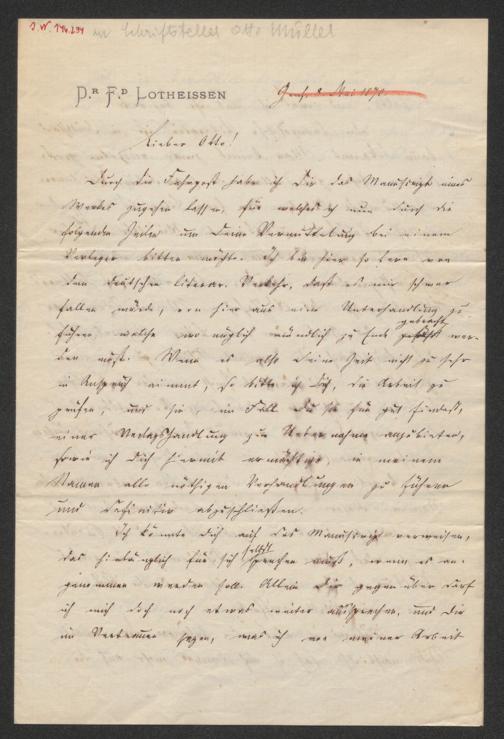 J.N. 194.234
an Schriftsteller Otto Müller
DR. FD. LOTHEISSEN
Genf. 8. Mai 1870.
Lieber Otto!
Durch die Fahrpost habe ich Dir das Manuscript eines
Werkes zugehen lassen, für welches ich nun durch die
folgenden Zeilen um Deine Vermittelung bei einem
Verleger bitten möchte. Ich bin hier so fern von
dem deutschen literar. Verkehr, daß es mir schwer
fallen würde, von hier aus eine Unterhandlung zu
führen welche wo möglich mündlich zu Ende gebracht wer-
den muß. Wenn es also Deine Zeit nicht zu sehr
in Anspruch nimmt, so bitte ich Dich, die Arbeit zu
prüfen, und sie im Fall Du sie für gut findest,
einer Verlagshandlung zur Uebernahme anzubieten,
sowie ich Dich hiermit ermächtige, in meinem
Namen alle nöthigen Verhandlungen zu führen
und definitiv abzuschließen.
Ich könnte Dich auf das Manuscript verweisen,
das hinlänglich für sich selbst sprechen muß, wenn es an-
genommen werden soll. Allein Dir gegenüber darf
ich mich doch noch etwas weiter aussprechen, und Dir
im Vertrauen sagen, was ich von meiner Arbeit